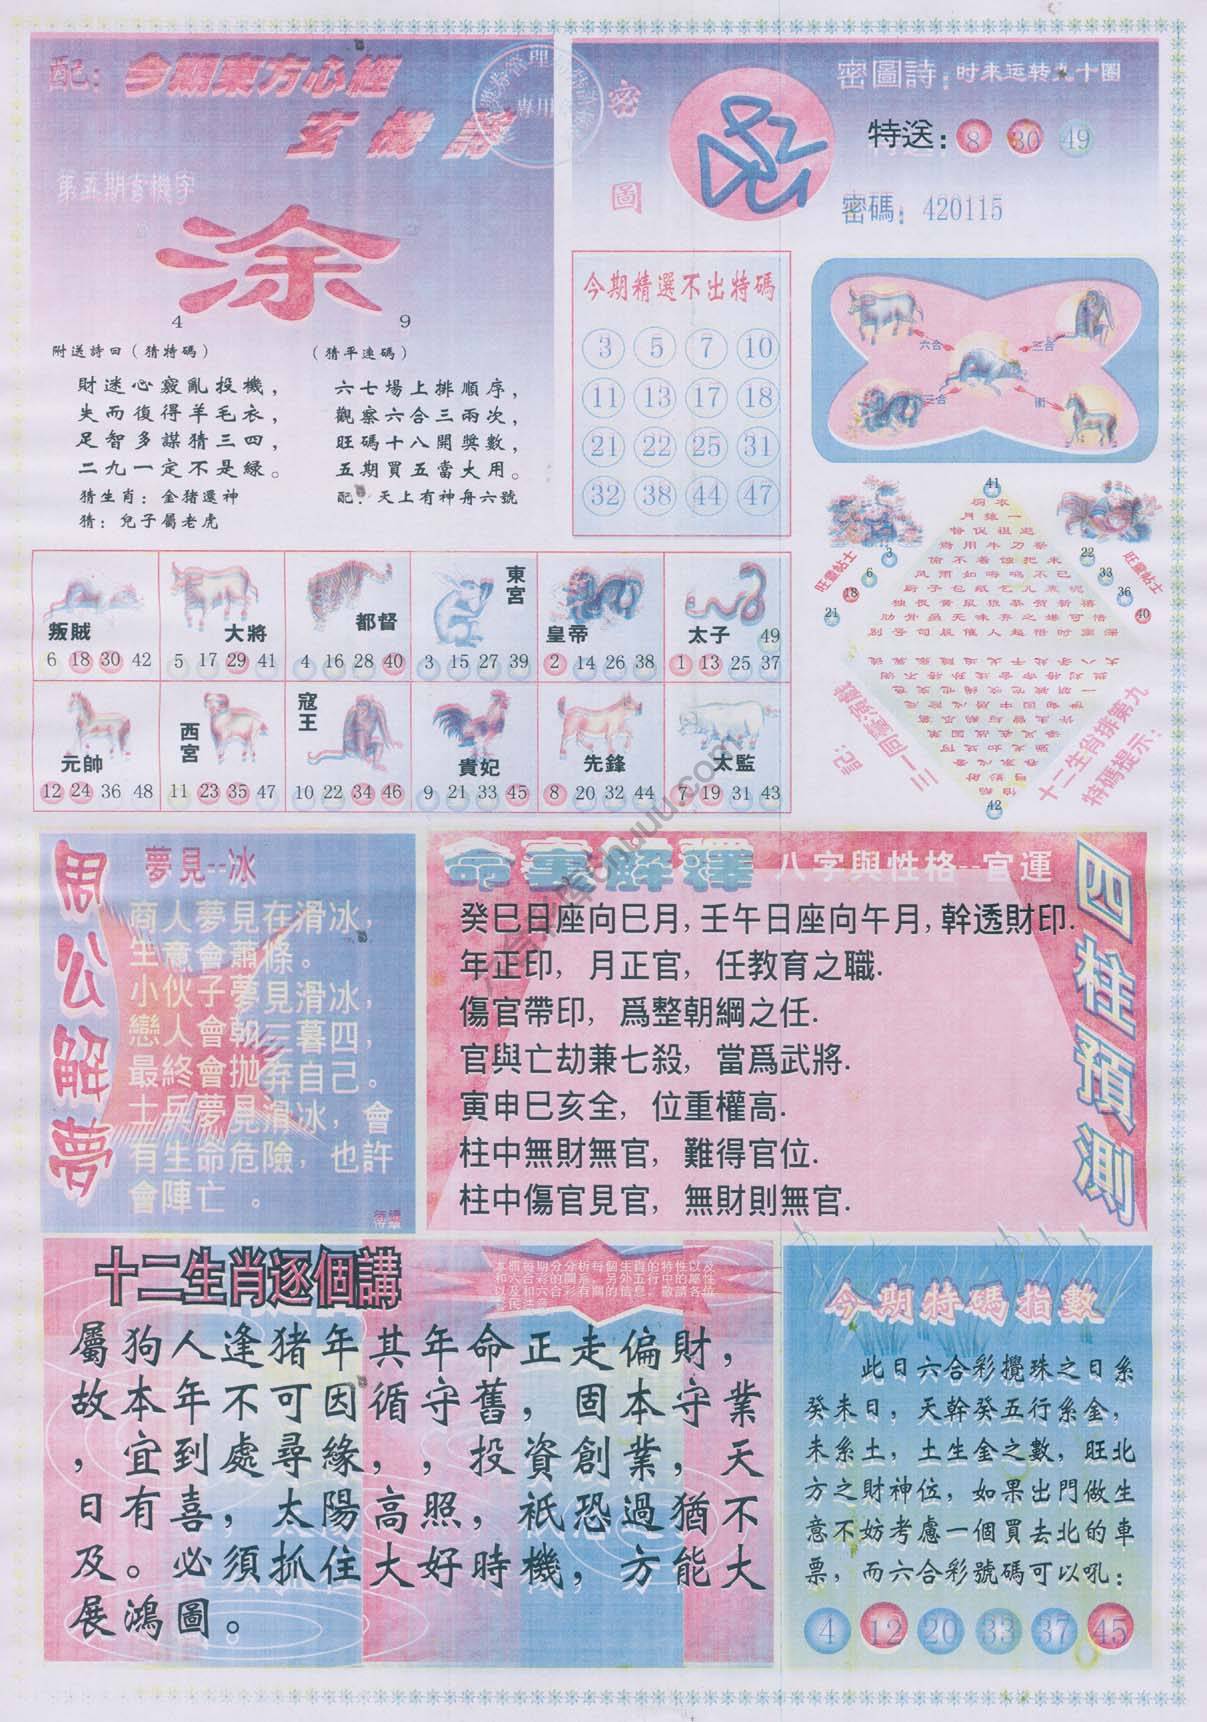 配：今期東方心經
玄機詩
第五期玄機字
涂
4 9
附送詩曰（猜特碼）
財迷心竅亂投機，
失而復得羊毛衣，
足智多謀猜三四，
二九一定不是綠。
猜生肖：金猪還神
猜：兒子屬老虎
（猜平連碼）
六七場上排順序，
觀察六合三兩次，
旺碼十八開獎數，
五期買五當大用。
配：天上有神舟六號
密圖
密圖詩：时来运转九十圈
特送：8 30 49
密碼：420115
今期精選不出特碼
3 5 7 10
11 13 17 18
21 22 25 31
32 38 44 47
六合
三合
三合
衝
41
旺數帖士
3
6
18
21
旺數帖士
22
33
36
40
42
記：
三一回臺演戲
十二生肖排第九
特碼提示：
叛賊
6 18 30 42
大將
5 17 29 41
都督
4 16 28 40
東宮
3 15 27 39
皇帝
2 14 26 38
太子
49
1 13 25 37
元帥
12 24 36 48
西宮
11 23 35 47
寇王
10 22 34 46
貴妃
9 21 33 45
先鋒
8 20 32 44
太監
7 19 31 43
周公解夢
夢見--冰
商人夢見在滑冰，
生意會蕭條。
小伙子夢見滑冰，
戀人會朝三暮四，
最終會抛弃自己。
士兵夢見滑冰，會
有生命危險，也許
會陣亡 。
待續
命書解釋
八字與性格--官運
四柱預測
癸巳日座向巳月，壬午日座向午月，幹透財印.
年正印，月正官，任教育之職.
傷官帶印，爲整朝綱之任.
官與亡劫兼七殺，當爲武將.
寅申巳亥全，位重權高.
柱中無財無官，難得官位.
柱中傷官見官，無財則無官.
十二生肖逐個講
本欄每期分分析每個生肖的特性以及
和六合彩的關系，另外五行中的屬性
以及和六合彩有關的信息。敬請各位
彩民注意。
屬狗人逢猪年其年命正走偏財，
故本年不可因循守舊，固本守業
，宜到處尋緣，，投資創業，天
日有喜，太陽高照，祇恐過猶不
及。必須抓住大好時機，方能大
展鴻圖。
今期特碼指數
此日六合彩攪珠之日系
癸未日，天幹癸五行系金，
未系土，土生金之數，旺北
方之財神位，如果出門做生
意不妨考慮一個買去北的車
票，而六合彩號碼可以吼：
4 12 20 33 37 45